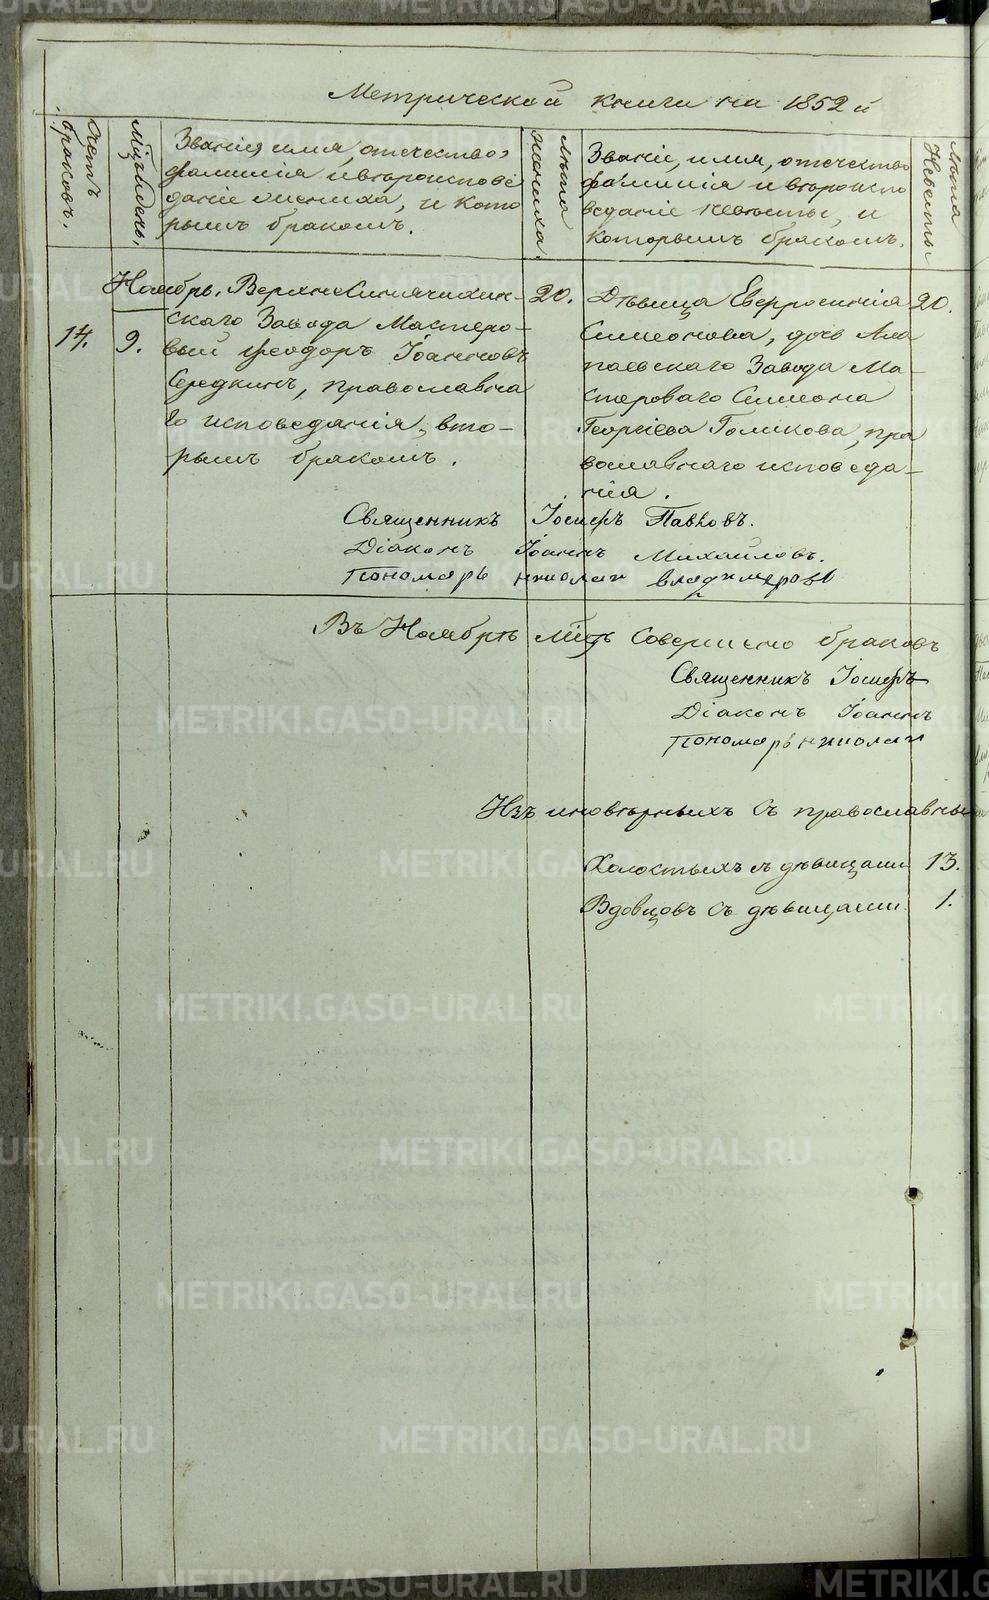 Метрической книги на 1852 й
Счетъ браковъ.
Мѣс. и день.
Званія, имя, отечество,
фамилія и вѣроисповѣ
даніе жениха, и кото
рымъ бракомъ.
Лѣта жениха.
Званіе, имя, отечество
фамилія и вѣроиспо
вѣданіе невѣсты, и
которымъ бракомъ.
Лѣта Невѣсты
Ноябрь.
14.
9.
Верхнесинячихин-
скаго Завода Мастеро-
вый Ѳеодоръ Іоанновъ
Середкинъ, православна
го исповеданія, вто-
рымъ бракомъ.
20.
Дѣвица Евфросинія
Симеонова, дочь Ала
паевскаго Завода Ма-
стероваго Симеона
Георгіева Голикова, пра
вославнаго исповеда-
нія.
20.
Священникъ Іосифъ Павловъ.
Діаконъ Іоаннъ Михайловъ.
Пономарь николай владимеровъ
Въ Ноябрѣ Мцѣ Совершено браковъ
Священникъ Іосифъ
Діаконъ Іоаннъ
Пономарь николай
Изъ иновѣрныхъ съ православны
Холостыхъ съ дѣвицами 13.
Вдовцовъ съ дѣвицами 1.
METRIKI.GASO-URAL.RU